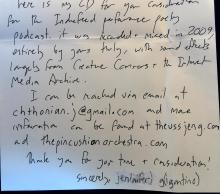 here is my CD for your consideration
for the Indiefeed performance poetry
podcast. it was recorded + mixed in 2009
entirely by yours truly, with sound effects
largely from Creative Commons + the Internet
Media Archive.
I can be reached via email at
chthonian.j@gmail.com and more
information can be found at theussjeng.com
and thepincushionorchestra.com
Thank you for your time + consideration!
sincerely, jennifer